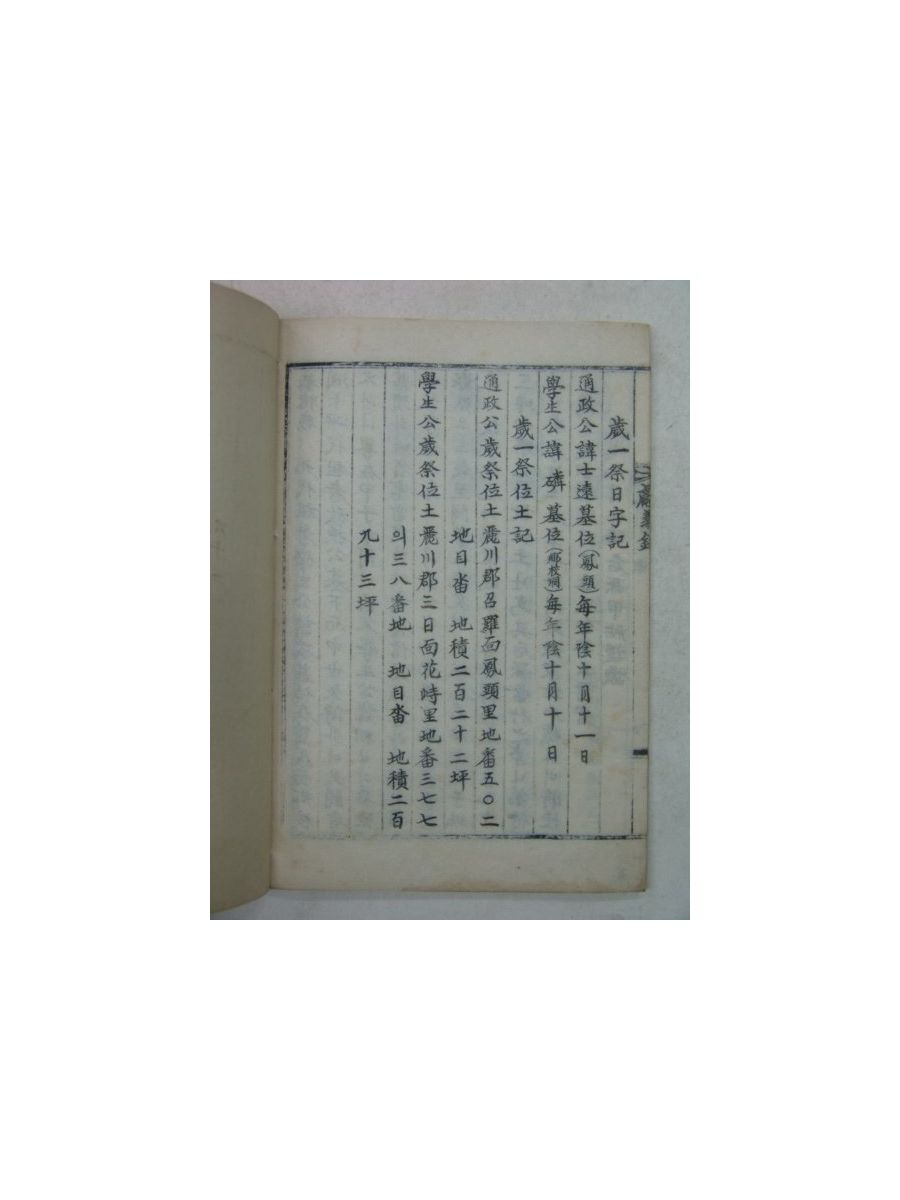 歲一祭日字記
通政公諱士遠墓位(鳳頭)每年陰十月十一日
學生公諱璘墓位(鄕校洞)每年陰十月十日
歲一祭位土記
通政公歲祭位土 麗川郡召羅面鳳頭里地番五〇二
地目畓 地積二百二十二坪
學生公歲祭位土 麗川郡三日面花峙里地番三七七
의三八番地 地目畓 地積二百
九十三坪